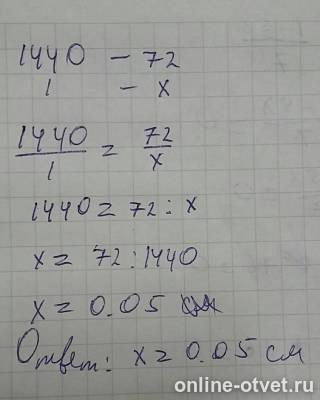 1440 – 72
1 – x
1440/1 = 72/x
1440 = 72 : x
x = 72 : 1440
x = 0.05
Ответ: x = 0.05 см
online-otvet.ru